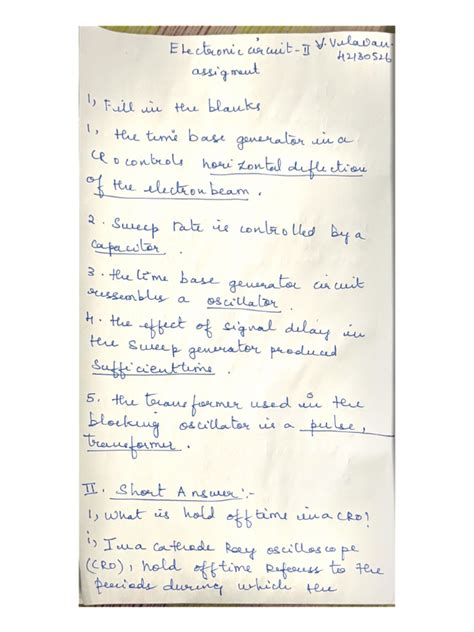 Electronic circuit-II V. Velavan-
assigment 42130526
1, Fill in the blanks
1, the time base generator in a
CRO controls horizontal deflection
of the electron beam.
2. Sweep rate is controlled by a
capacitor.
3. the time base generator circuit
ressembles a oscillator.
4. the effect of signal delay in
the sweep generator produced
sufficient time.
5. the transformer used in the
blocking oscillator is a pulse,
transformer.
II. Short Answer:-
1, What is hold off time in a CRO?
i, In a cathode Ray oscilloscope
(CRO), hold off time Referss to the
periods during which the